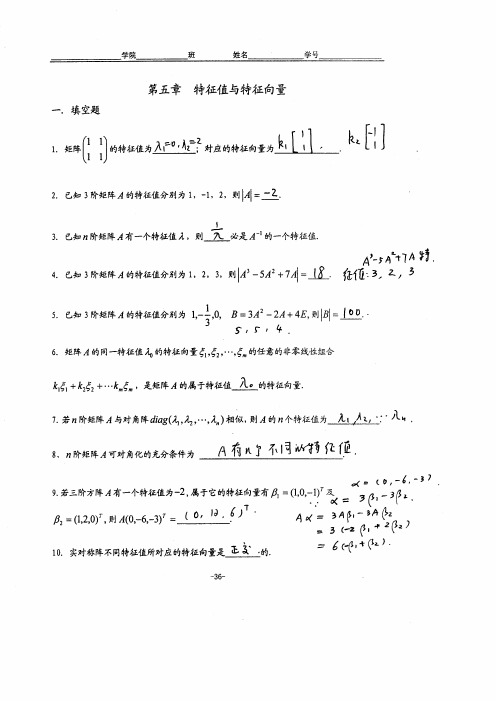 学院 班 姓名 学号
第五章 特征值与特征向量
一. 填空题
1. 矩阵(1 1; 1 1)的特征值为 λ₁=0, λ₂=2; 对应的特征向量为 k₁[1 1], k₂[-1 1].
2. 已知 3 阶矩阵 A 的特征值分别为 1, -1, 2, 则|A|= -2.
3. 已知 n 阶矩阵 A 有一个特征值 λ, 则 1/λ 必是 A⁻¹ 的一个特征值.
A³-5A²+7A 特
4. 已知 3 阶矩阵 A 的特征值分别为 1, 2, 3, 则|A³-5A²+7A|= 18. 征值: 3, 2, 3
5. 已知 3 阶矩阵 A 的特征值分别为 1,-1/3,0, B=3A²-2A+4E, 则|B|= 100.
5, 5, 4.
6. 矩阵 A 的同一特征值 λ₀ 的特征向量 ξ₁,ξ₂,⋯,ξₘ 的任意的非零线性组合
k₁ξ₁+k₂ξ₂+⋯kₘξₘ, 是矩阵 A 的属于特征值 λ₀ 的特征向量.
7. 若 n 阶矩阵 A 与对角阵 diag(λ₁,λ₂,⋯,λₙ) 相似, 则 A 的 n 个特征值为 λ₁, λ₂, ⋯ λₙ.
8. n 阶矩阵 A 可对角化的充分条件为 A有n个不同的特征值.
α=(0,-6,-3)
9. 若三阶方阵 A 有一个特征值为-2, 属于它的特征向量有 β₁=(1,0,-1)ᵀ 及 ∵ α = 3β₁-3β₂.
β₂=(1,2,0)ᵀ, 则 A(0,-6,-3)ᵀ = (0, 12, 6)ᵀ. Aα = 3Aβ₁-3Aβ₂
= 3(-2β₁+2β₂)
10. 实对称阵不同特征值所对应的特征向量是 正交 的. = 6(-β₁+β₂).
-36-